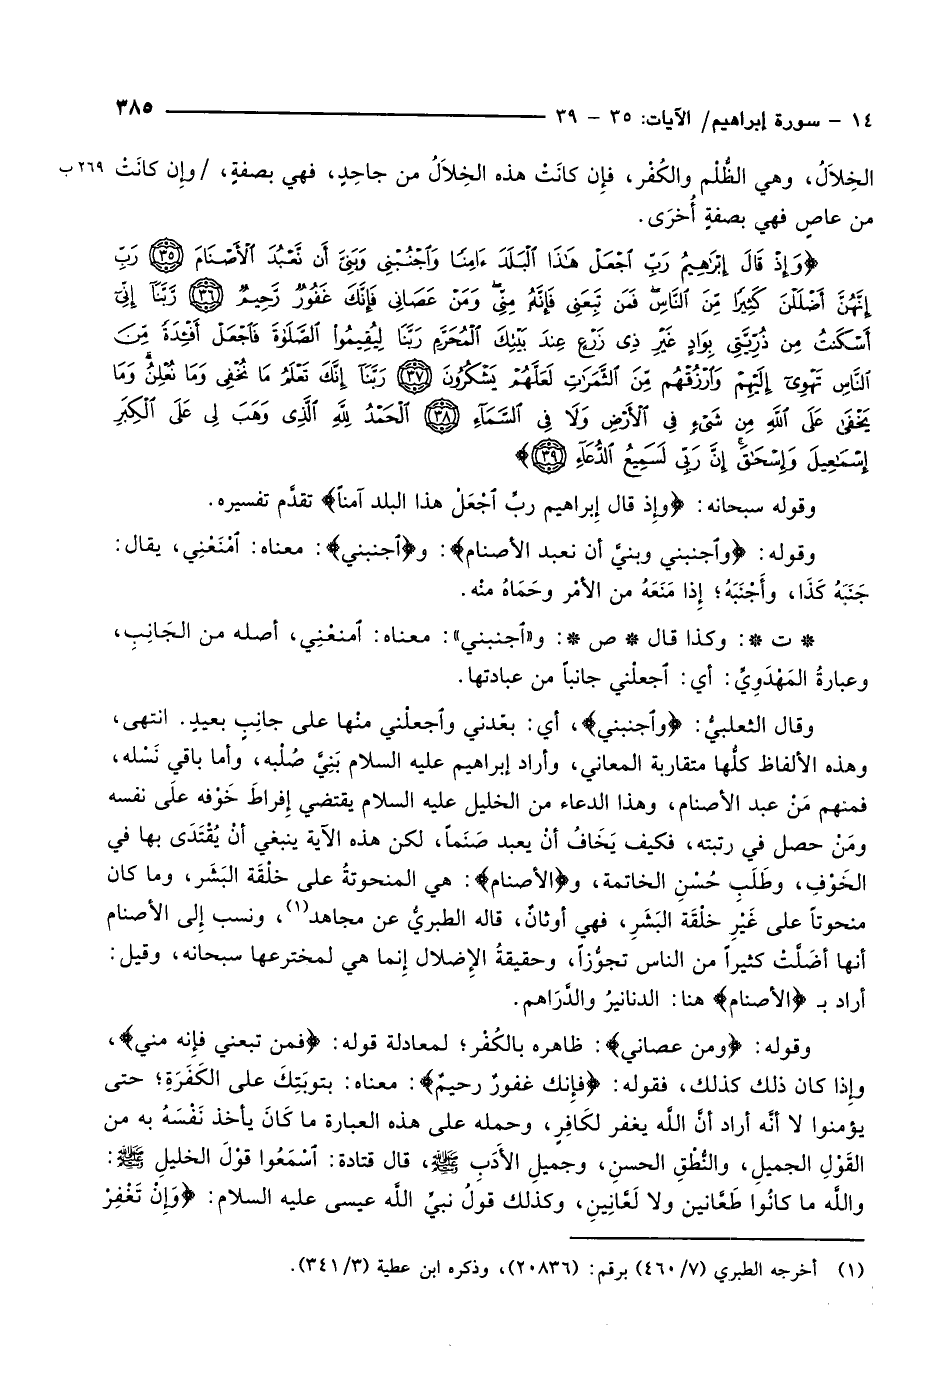 ١٤ - سورة إبراهيم/ الآيات: ٣٥ - ٣٩ ٣٨٥
الخِلالُ، وهي الظُّلْم والكُفْر، فإِن كانَت هذه الخِلاَلُ من جاحِدٍ، فهي بصفةٍ، /وإِن كانَتْ ٢٦٩ ب
من عاصٍ فهي بصفةٍ أُخرَى.
﴿وَإِذْ قَالَ إِبْرَاهِيمُ رَبِّ ٱجْعَلْ هَٰذَا ٱلْبَلَدَ ءَامِنًا وَٱجْنُبْنِى وَبَنِىَّ أَن نَّعْبُدَ ٱلْأَصْنَامَ ٣٥ رَبِّ
إِنَّهُنَّ أَضْلَلْنَ كَثِيرًا مِّنَ ٱلنَّاسِ فَمَن تَبِعَنِى فَإِنَّهُ مِنِّى وَمَنْ عَصَانِى فَإِنَّكَ غَفُورٌ رَّحِيمٌ ٣٦ رَّبَّنَآ إِنِّىٓ
أَسْكَنتُ مِن ذُرِّيَّتِى بِوَادٍ غَيْرِ ذِى زَرْعٍ عِندَ بَيْتِكَ ٱلْمُحَرَّمِ رَبَّنَا لِيُقِيمُوا۟ ٱلصَّلَوٰةَ فَٱجْعَلْ أَفْـِٔدَةً مِّنَ
ٱلنَّاسِ تَهْوِىٓ إِلَيْهِمْ وَٱرْزُقْهُم مِّنَ ٱلثَّمَرَٰتِ لَعَلَّهُمْ يَشْكُرُونَ ٣٧ رَبَّنَآ إِنَّكَ تَعْلَمُ مَا نُخْفِى وَمَا نُعْلِنُ وَمَا
يَخْفَىٰ عَلَى ٱللَّهِ مِن شَىْءٍ فِى ٱلْأَرْضِ وَلَا فِى ٱلسَّمَآءِ ٣٨ ٱلْحَمْدُ لِلَّهِ ٱلَّذِى وَهَبَ لِى عَلَى ٱلْكِبَرِ
إِسْمَٰعِيلَ وَإِسْحَٰقَ إِنَّ رَبِّى لَسَمِيعُ ٱلدُّعَآءِ ٣٩﴾
وقوله سبحانه: ﴿وإذ قال إِبراهيم ربِّ ٱجْعَلْ هذا البلد آمناً﴾ تقدَّم تفسيره.
وقوله: ﴿وٱجنبني وبنيَّ أن نعبد الأصنام﴾: و﴿ٱجنبني﴾: معناه: ٱمْنَعْنِي، يقال:
جَنَبَهُ كَذَا، وأَجْنَبَهُ؛ إِذا مَنَعَهُ من الأمْر وحَمَاهُ منْه.
* ت *: وكذا قال * ص *: و«ٱجنبني»: معناه: ٱمنعْنِي، أصله من الجَانِبِ،
وعبارةُ المَهْدَوِيِّ: أي: ٱجعلْني جانباً من عبادتها.
وقال الثعلبيُّ: ﴿وٱجنبني﴾، أي: بعِّدني وٱجعلْني منْها على جانِبٍ بعيدٍ. انتهى،
وهذه الألفاظ كلُّها متقاربة المعاني، وأراد إِبراهيم عليه السلام بَنِيَّ صُلْبه، وأما باقي نَسْله،
فمنهم مَنْ عبد الأصنام، وهذا الدعاء من الخليل عليه السلام يقتضي إِفراطَ خَوْفه علَى نفسه
ومَنْ حصل في رتبته، فكيف يَخَافُ أنْ يعبد صَنَماً، لكن هذه الآية ينبغي أنْ يُقْتَدَى بها في
الخَوْفِ، وطَلَبِ حُسْنِ الخاتمة، و﴿الأصنام﴾: هي المنحوتةُ على خلْقَة البَشَر، وما كان
منحوتاً على غَيْرِ خلْقَة البَشَرِ، فهي أوثانٌ، قاله الطبريُّ عن مجاهد(١)، ونسب إِلى الأصنام
أنها أضَلَّتْ كثيراً من الناس تجوُّزاً، وحقيقةُ الإِضلال إِنما هي لمخترعها سبحانه، وقيل:
أراد بـ ﴿الأصنام﴾ هنا: الدنانيرُ والدَّرَاهم.
وقوله: ﴿ومن عصاني﴾: ظاهره بالكُفْر؛ لمعادلة قوله: ﴿فمن تبعني فإِنه مني﴾،
وإِذا كان ذلك كذلك، فقوله: ﴿فإِنك غفورٌ رحيمٌ﴾: معناه: بتوبَتِكَ على الكَفَرَةِ؛ حتى
يؤمنوا لا أنَّه أراد أنَّ اللَّه يغفر لكَافِرٍ، وحمله على هذه العبارة ما كَانَ يأخذ نَفْسَهُ به من
القَوْلِ الجميل، والنُّطْقِ الحسنِ، وجميلِ الأَدَبِ ﷺ، قال قتادة: ٱسْمَعُوا قوْلَ الخليل ﷺ:
واللَّه ما كانُوا طَعَّانين ولا لَعَّانِينِ، وكذلك قولُ نبيِّ اللَّه عيسى عليه السلام: ﴿وَإِنْ تَغْفِرْ
(١) أخرجه الطبري (٧/ ٤٦٠) برقم: (٢٠٨٣٦)، وذكره ابن عطية (٣/ ٣٤١).